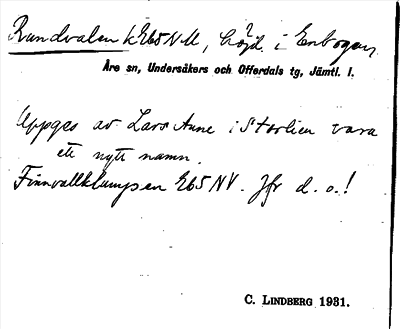 Rundvalen k E65 N M, höjd. i Enbogen
Åre sn, Undersåkers och Offerdals tg, Jämtl. l.
Uppges av Lars Aune i Storlien vara
ett nytt namn.
Finnvallklumpen E65 NV. Jfr d. o.!
C. LINDBERG 1931.